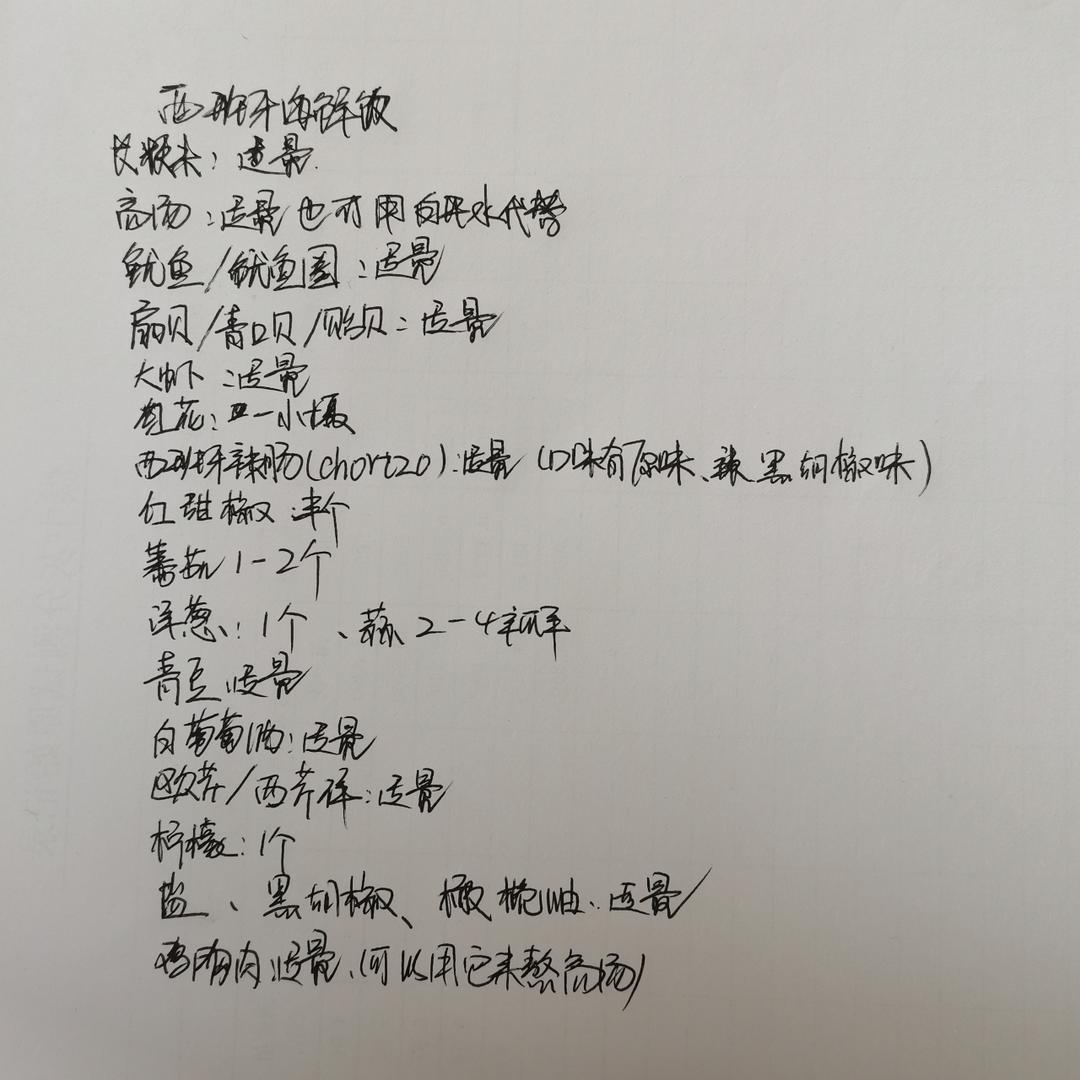 西班牙海鲜饭
长粳米：适量.
高汤：适量也可用白开水代替
鱿鱼/鱿鱼圈：适量
扇贝/青口贝/贻贝：适量
大虾：适量
红花：一小撮
西班牙辣肠(chorizo)：适量（口味有原味、辣黑胡椒味）
红甜椒：半个
蕃茄1-2个
洋葱：1个、蒜2-4瓣
青豆：适量
白葡萄酒：适量
欧芹/西芹碎：适量
柠檬：1个
盐、黑胡椒、橄榄油：适量
鸡胸肉：适量、(可以用它来熬高汤)